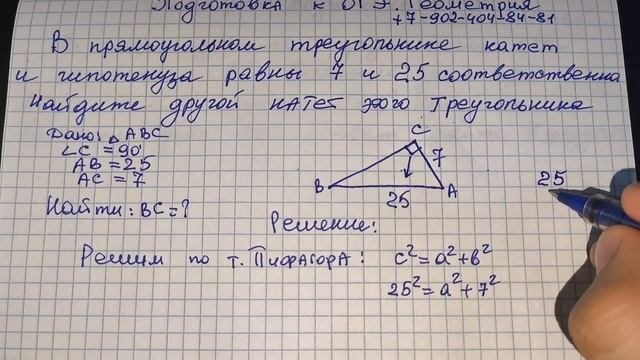 Подготовка к ОГЭ. Геометрия
+7-902-404-84-81
В прямоугольном треугольнике катет
и гипотенуза равны 7 и 25 соответственно
Найдите другой катет этого треугольника
Дано: △ABC
∠C = 90°
AB = 25
AC = 7
Найти: BC = ?
C
7
B
25
A
25
Решение:
Решим по т. Пифагора: c² = a² + b²
25² = a² + 7²